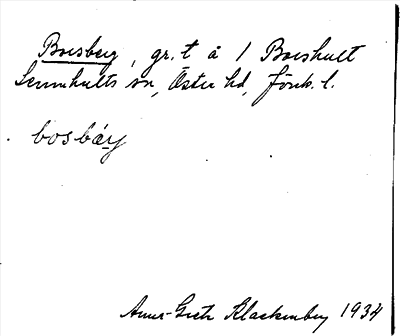 Boesberg, gr. t å / Boeshult
Lemnhults sn, Öster hd, Jönk. l.
bosbäry
Anna-Greta Klackenberg 1934